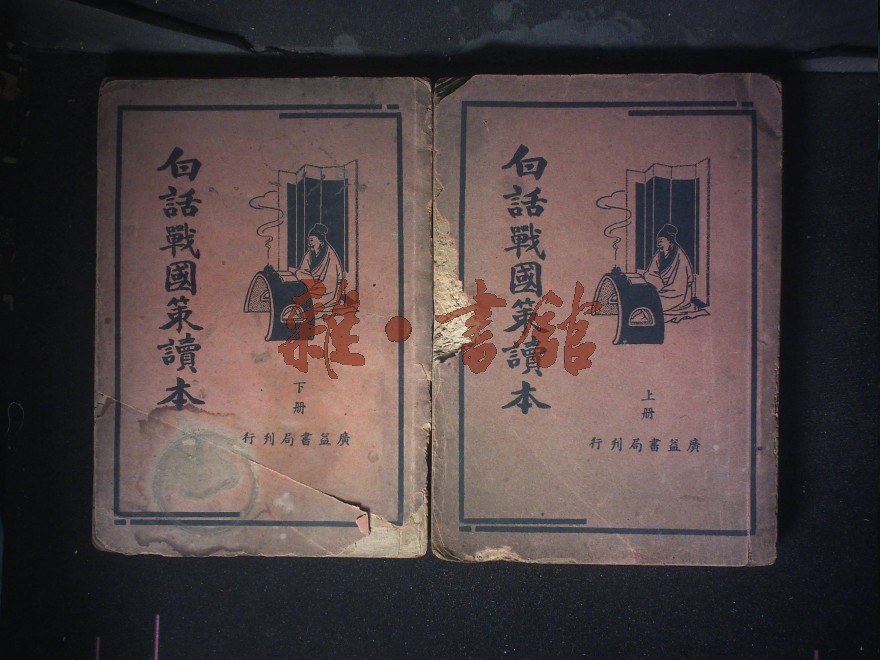 白話戰國策讀本
下册
廣益書局刋行
白話戰國策讀本
上册
廣益書局刋行
雜·書館